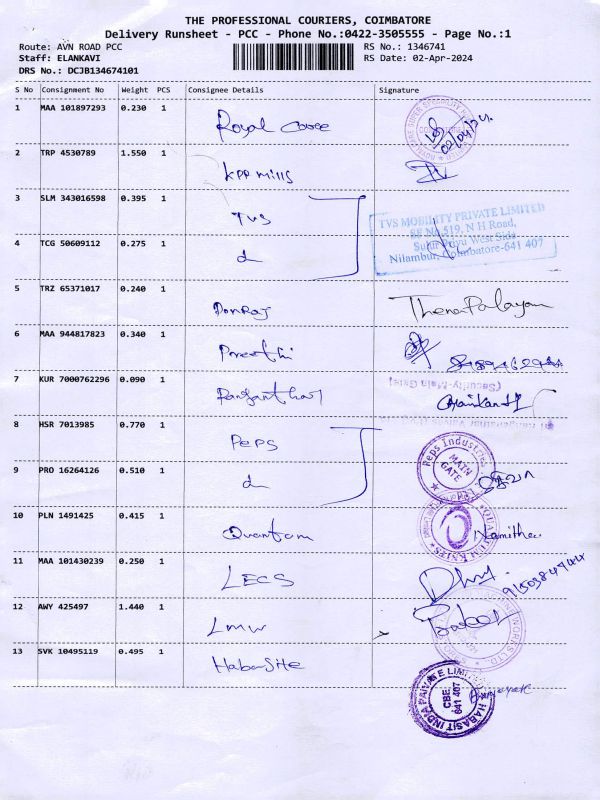 THE PROFESSIONAL COURIERS, COIMBATORE
Delivery Runsheet - PCC - Phone No.:0422-3505555 - Page No.:1
Route: AVN ROAD PCC RS No.: 1346741
Staff: ELANKAVI RS Date: 02-Apr-2024
DRS No.: DCJB134674101
S No Consignment No Weight PCS Consignee Details Signature
1 MAA 101897293 0.230 1 Royal 02/04/24
2 TRP 4530789 1.550 1 KPP mills
3 SLM 343016598 0.395 1 TVS
TVS MOBILITY PRIVATE LIMITED
SF No.519, N H Road,
4 TCG 50609112 0.275 1 d West Side
Nilambur, Coimbatore-641 407
5 TRZ 65371017 0.240 1 Ponraj
6 MAA 944817823 0.340 1 Preethi
7 KUR 7000762296 0.090 1
(Security-Main Gate)
8 HSR 7013985 0.770 1 PePS
Peps Industries
MAIN GATE
9 PRO 16264126 0.510 1 d
10 PLN 1491425 0.415 1 Quantam Namitha
11 MAA 101430239 0.250 1 LECS
12 AWY 425497 1.440 1 LMW
13 SVK 10495119 0.495 1 HabaSite
HABASIT INDIA PRIVATE LIMITED
CBE. 641 407